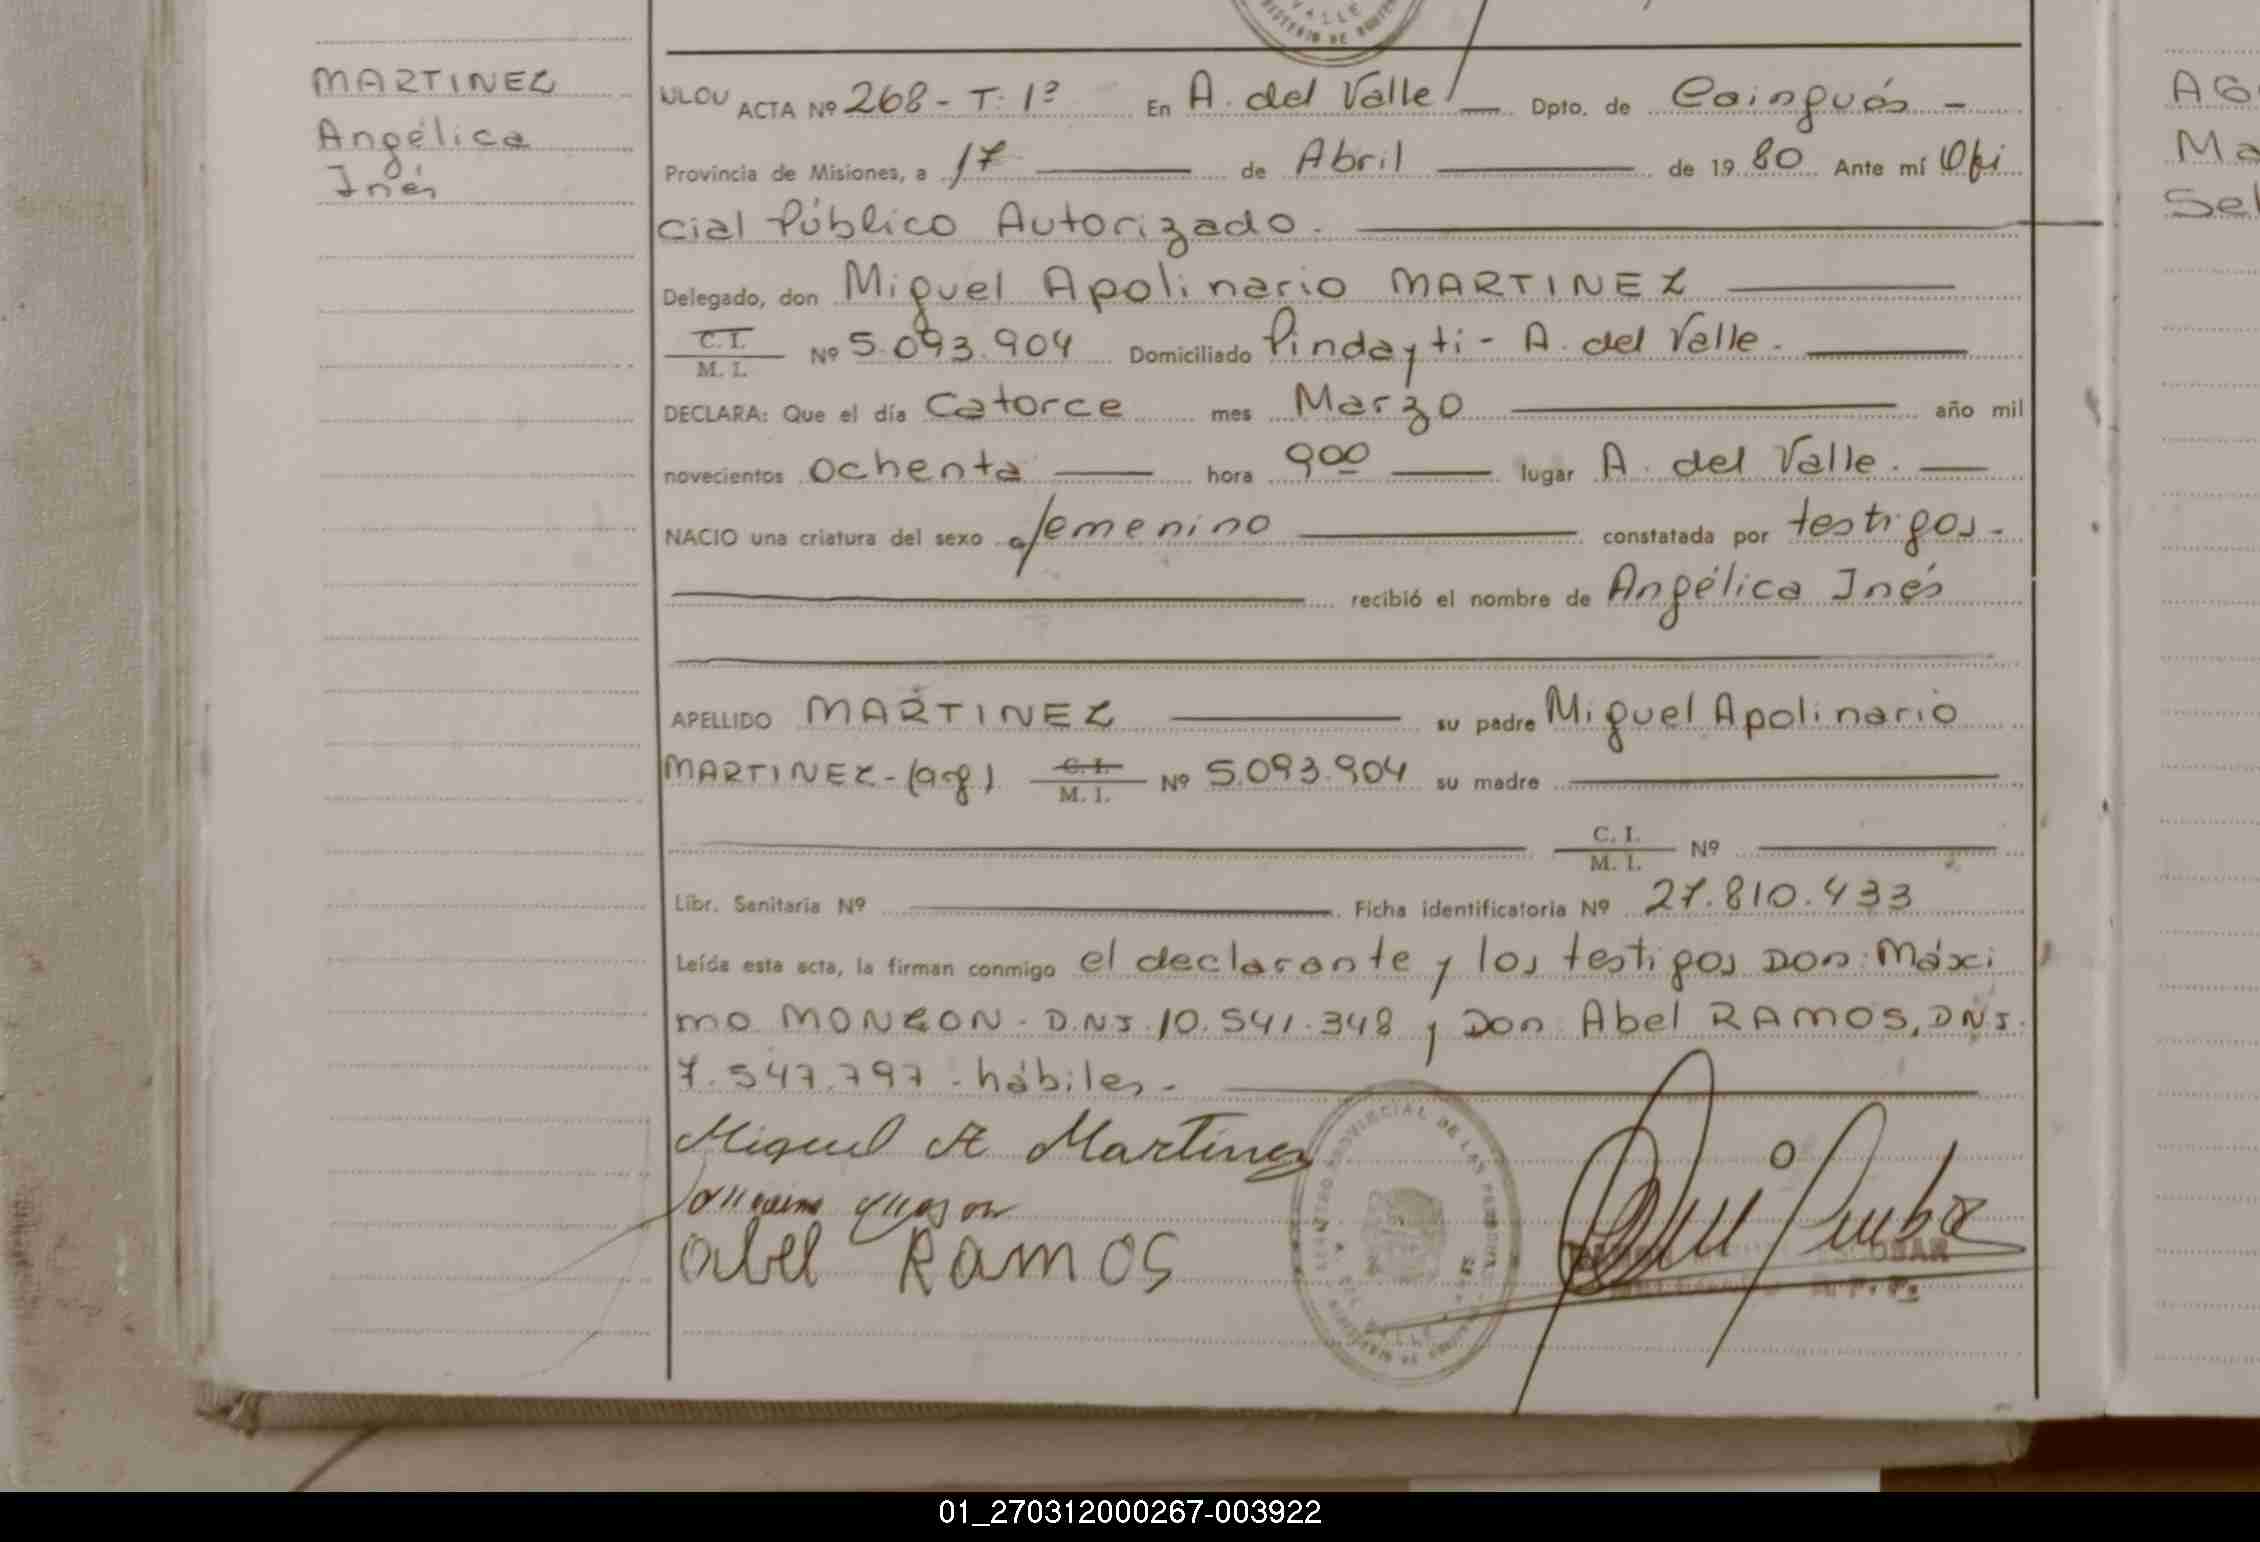 MARTINEZ
Angélica
Inés
ACTA Nº 268 - T: 1º En A. del Valle Dpto. de Cainguás -
Provincia de Misiones, a 17 de Abril de 19 80 Ante mí Ofi
cial Público Autorizado.
Delegado, don Miguel Apolinario MARTINEZ
C. I. / M. I. Nº 5.093.904 Domiciliado Pindayti - A. del Valle.
DECLARA: Que el día Catorce mes Marzo año mil
novecientos ochenta hora 900 lugar A. del Valle.
NACIO una criatura del sexo femenino constatada por testigos.-
recibió el nombre de Angélica Inés
APELLIDO MARTINEZ su padre Miguel Apolinario
MARTINEZ - (arg) C. I. / M. I. Nº 5.093.904 su madre
C. I. / M. I. Nº
Libr. Sanitaria Nº Ficha identificatoria Nº 27.810.433
Leída esta acta, la firman conmigo el declarante y los testigos Don: Máxi
mo MONZON - D.N.I. 10.541.348 y Don Abel RAMOS, DNI.
7.547.797 - hábiles -
Miguel A Martinez
abel RAMOS
REGISTRO PROVINCIAL DE LAS PERSONAS
01_270312000267-003922